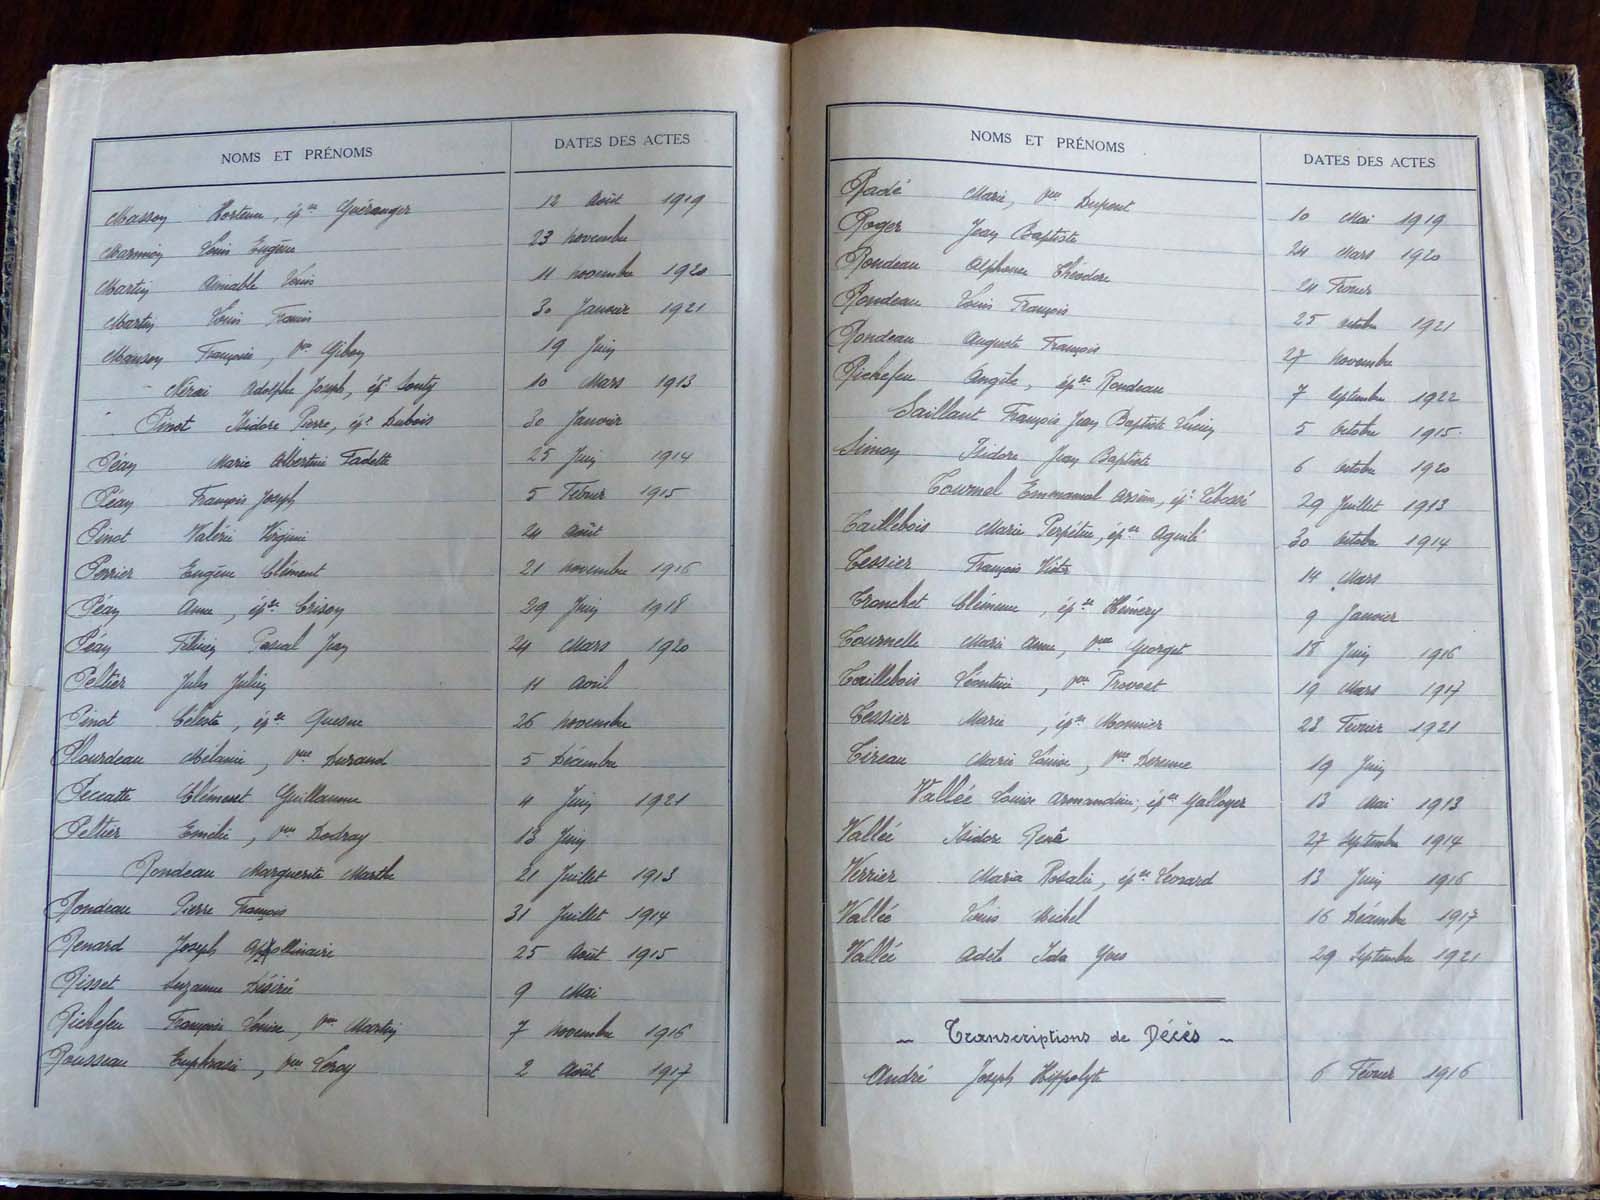 NOMS ET PRÉNOMS DATES DES ACTES
Masson Hortense, épse Guéranger 12 Août 1919
Marmion Louis Eugène 23 novembre
Martin Aimable Louis 11 novembre 1920
Martin Louis Francis 30 Janvier 1921
Françoise, Vve 19 Juin
Adolphe Joseph, épx 10 Mars 1913
Pinot Isidore Pierre, épx Dubois 30 Janvier
Péan Marie Albertine Fadette 25 Juin 1914
Péan François Joseph 5 Février 1915
Pinot Valérie Virginie 24 Août
Perrier Eugène Clément 21 novembre 1916
Péan Anne, épse Crison 29 Juin 1918
Péan Félicien Pascal Jean 24 Mars 1920
Peltier Jules Julien 11 Avril
Pinot Céleste, épse Quesne 26 novembre
Plourdeau Mélanie, Vve Durand 5 Décembre
Peccatte Clément Guillaume 4 Juin 1921
Peltier Emélie, Vve Dodray 13 Juin
Rondeau Marguerite Marthe 21 Juillet 1913
Rondeau Pierre François 31 Juillet 1914
Renard Joseph Appollinaire 25 Août 1915
Risset Suzanne Désirée 9 Mai
Richefeu Françoise Louise, Vve Martin 7 novembre 1916
Rousseau Euphrasie, Vve Leroy 2 Août 1917
NOMS ET PRÉNOMS DATES DES ACTES
Radé Marie, Vve Dupont 10 Mai 1919
Roger Jean Baptiste 24 Mars 1920
Rondeau Alphonse Théodore 24 Février
Rondeau Louis François 25 Octobre 1921
Rondeau Auguste François 27 novembre
Richefeu Angèle, épse Rondeau 7 Septembre 1922
Saillant François Jean Baptiste Lucien 5 Octobre 1915
Simon Isidore Jean Baptiste 6 Octobre 1920
Tournel Emmanuel Arsène, épx 29 Juillet 1913
Taillebois Marie Perpétue, épse Aguilé 30 Octobre 1914
Tessier François Victor 14 Mars
Tronchet Clémence, épse Hémery 9 Janvier
Tournelle Marie Anne, Vve Georget 18 Juin 1916
Taillebois Léontine, Vve Provost 19 Mars 1917
Tessier Marie, épse Monnier 23 Février 1921
Tireau Marie Louise, Vve Derenne 19 Juin
Vallée Louise Armandine, épse Galloyer 13 Mai 1913
Vallée Isidore René 27 Septembre 1914
Verrier Maria Rosalie, épse Léonard 13 Juin 1916
Vallée Louis Michel 16 Décembre 1917
Vallée Adèle Ida Yves 29 Septembre 1921
~ Transcriptions de Décès ~
André Joseph Hippolyte 6 Février 1916